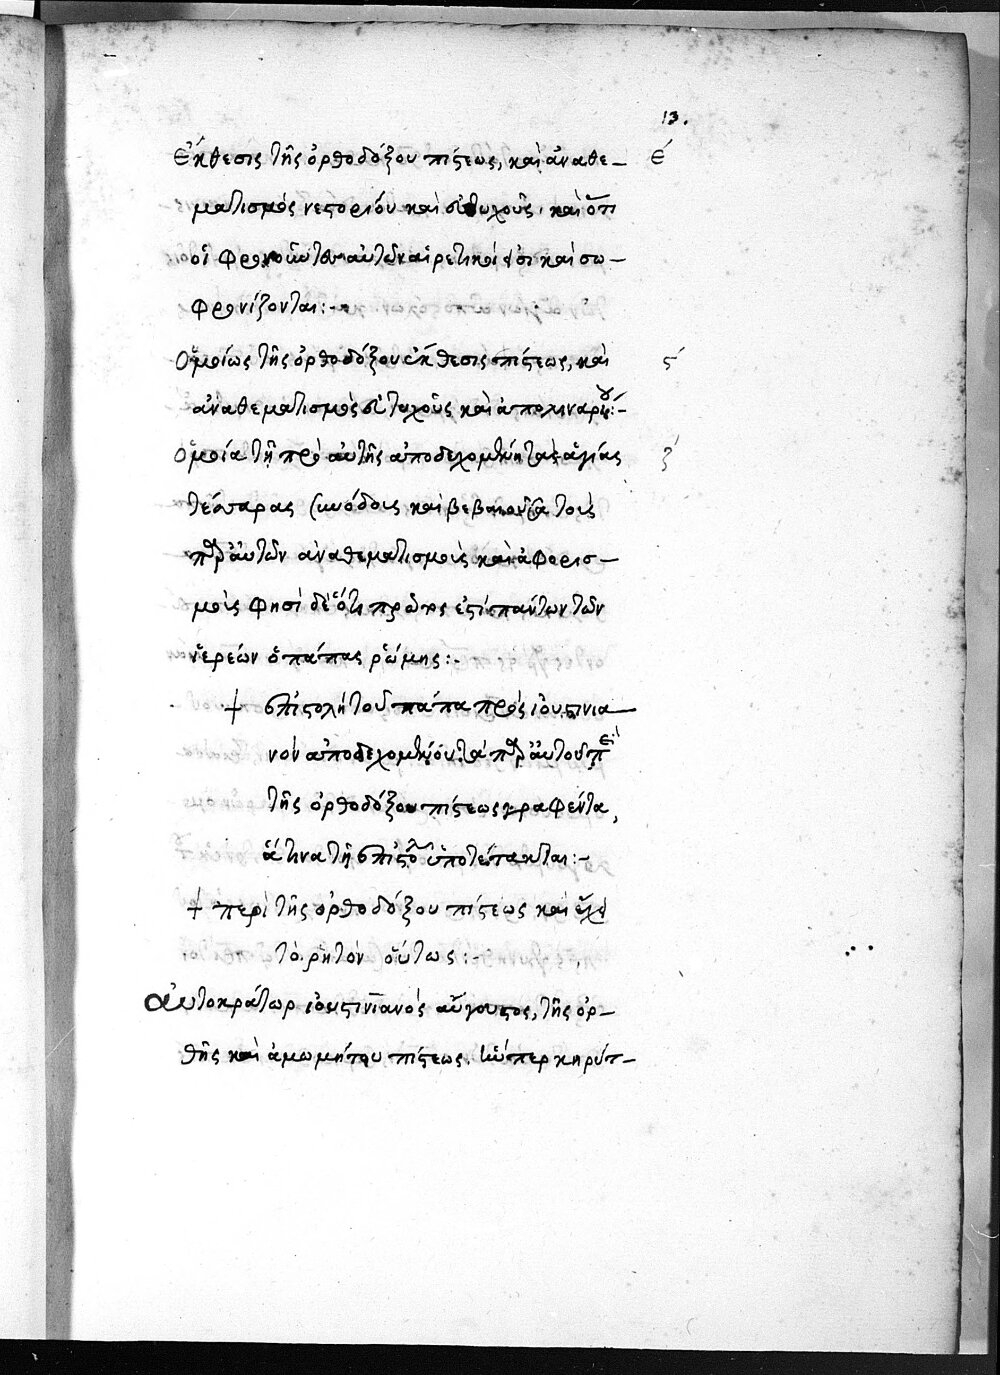 13.
Ἔκθεσις τῆς ὀρθοδόξου πίστεως, καὶ ἀναθε– έ
ματισμὸς νεστορίου καὶ εὐτυχοῦς· καὶ ὅτι
οἱ φρονοῦντες αὐτῶν αἱρετικοί καὶ σω–
φρονίζονται:–
Ὁμοίως τῆς ὀρθοδόξου ἔκθεσις πίστεως, καὶ ς΄
ἀναθεματισμὸς εὐτυχοῦς καὶ ἀπολιναρίου:–
Ὁμοία τῇ πρὸ αὐτῆς ἀποδεχομένη τὰς ἁγίας ζ΄
τέσσαρας συνόδους καὶ βεβαιοῦσα τοὺς
παρ' αὐτῶν ἀναθεματισμοὺς καὶ ἀφορισ–
μοὺς φησὶ δὲ ὅτι πρῶτος ἐστὶ πάντων τῶν
ἱερέων ὁ πάπας ῥώμης:–
+ ἐπιστολὴ τοῦ πάπα πρὸς ἰουστινια–
νὸν ἀποδεχομένου τὰ παρ' αὐτοῦ περὶ
τῆς ὀρθοδόξου πίστεως γραφέντα,
ἅτινα τῇ ἐπιστολῇ ὑποτέτακται:–
+ περὶ τῆς ὀρθοδόξου πίστεως καὶ ἔχει
τὸ ῥητὸν οὕτως:–
Αὐτοκράτωρ ἰουστινιανὸς αὔγουστος, τῆς ὀρ–
θῆς καὶ ἀμωμήτου πίστεως. ἥνπερ κηρύτ–